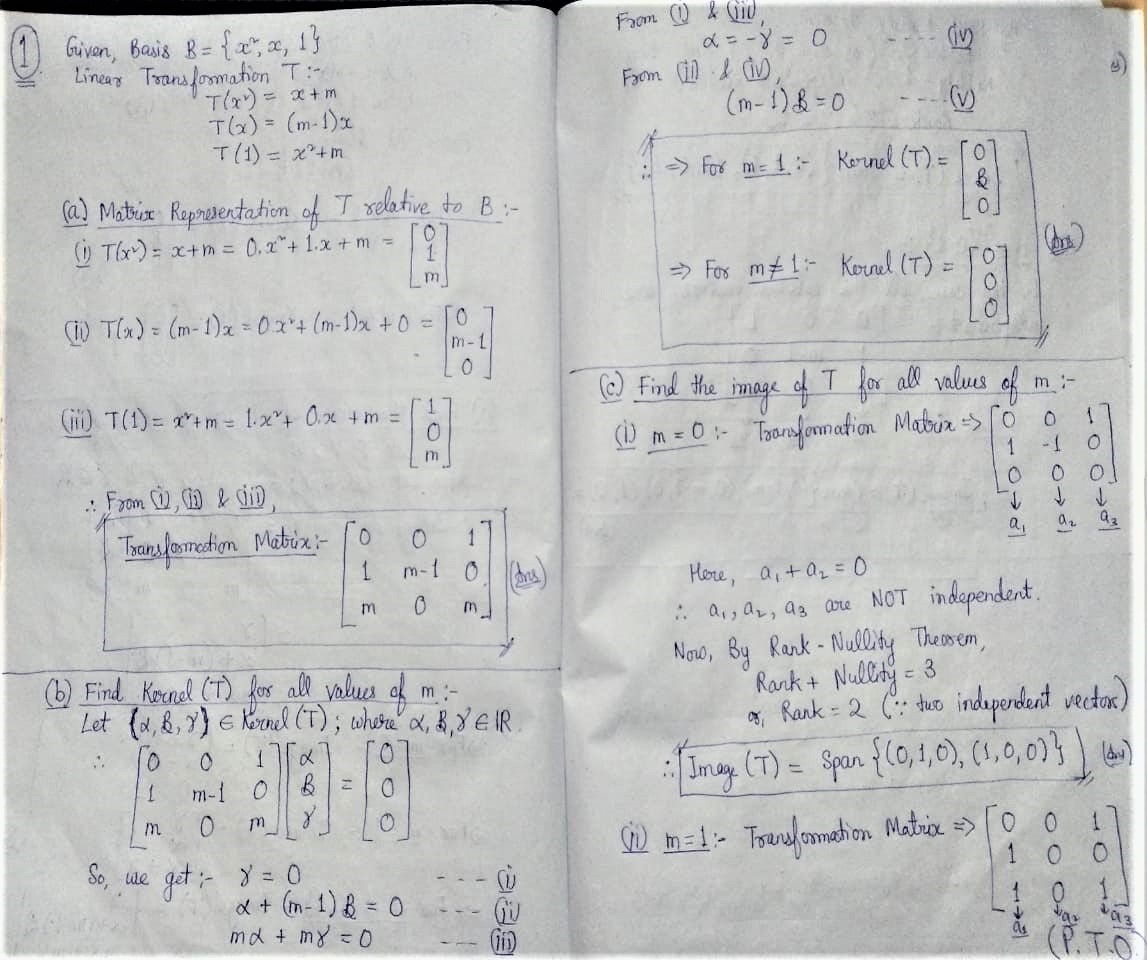 1 Given, Basis B = {x², x, 1}
Linear Transformation T :-
T(x²) = x+m
T(x) = (m-1)x
T(1) = x²+m
(a) Matrix Representation of T relative to B :-
(i) T(x²) = x+m = 0.x² + 1.x + m = [0 1 m]
(ii) T(x) = (m-1)x = 0x² + (m-1)x + 0 = [0 m-1 0]
(iii) T(1) = x²+m = 1.x² + 0.x + m = [1 0 m]
∴ From (i), (ii) & (iii),
Transformation Matrix :- [0 0 1
1 m-1 0
m 0 m] (Ans)
(b) Find Kernel (T) for all values of m :-
Let (α, β, γ) ∈ Kernel (T) ; where α, β, γ ∈ IR.
∴ [0 0 1] [α] = [0]
[1 m-1 0] [β] [0]
[m 0 m] [γ] [0]
So, we get :- γ = 0 ---- (i)
α + (m-1) β = 0 --- (ii)
mα + mγ = 0 --- (iii)
From (i) & (iii),
α = -γ = 0 ---- (iv)
From (ii) & (iv),
(m-1) β = 0 ---- (v)
∴ ⇒ For m = 1 :- Kernel (T) = [0 β 0]
⇒ For m ≠ 1 :- Kernel (T) = [0 0 0] (Ans)
(c) Find the image of T for all values of m :-
(i) m = 0 :- Transformation Matrix ⇒ [0 0 1
1 -1 0
0 0 0]
↓ ↓ ↓
a₁ a₂ a₃
Here, a₁ + a₂ = 0
∴ a₁, a₂, a₃ are NOT independent.
Now, By Rank - Nullity Theorem,
Rank + Nullity = 3
or, Rank = 2 (∵ two independent vectors)
∴ Image (T) = Span {(0,1,0), (1,0,0)} (Ans)
(ii) m = 1 :- Transformation Matrix ⇒ [0 0 1
1 0 0
1 0 1]
↓ ↓ ↓
a₁ a₂ a₃
(P.T.O)